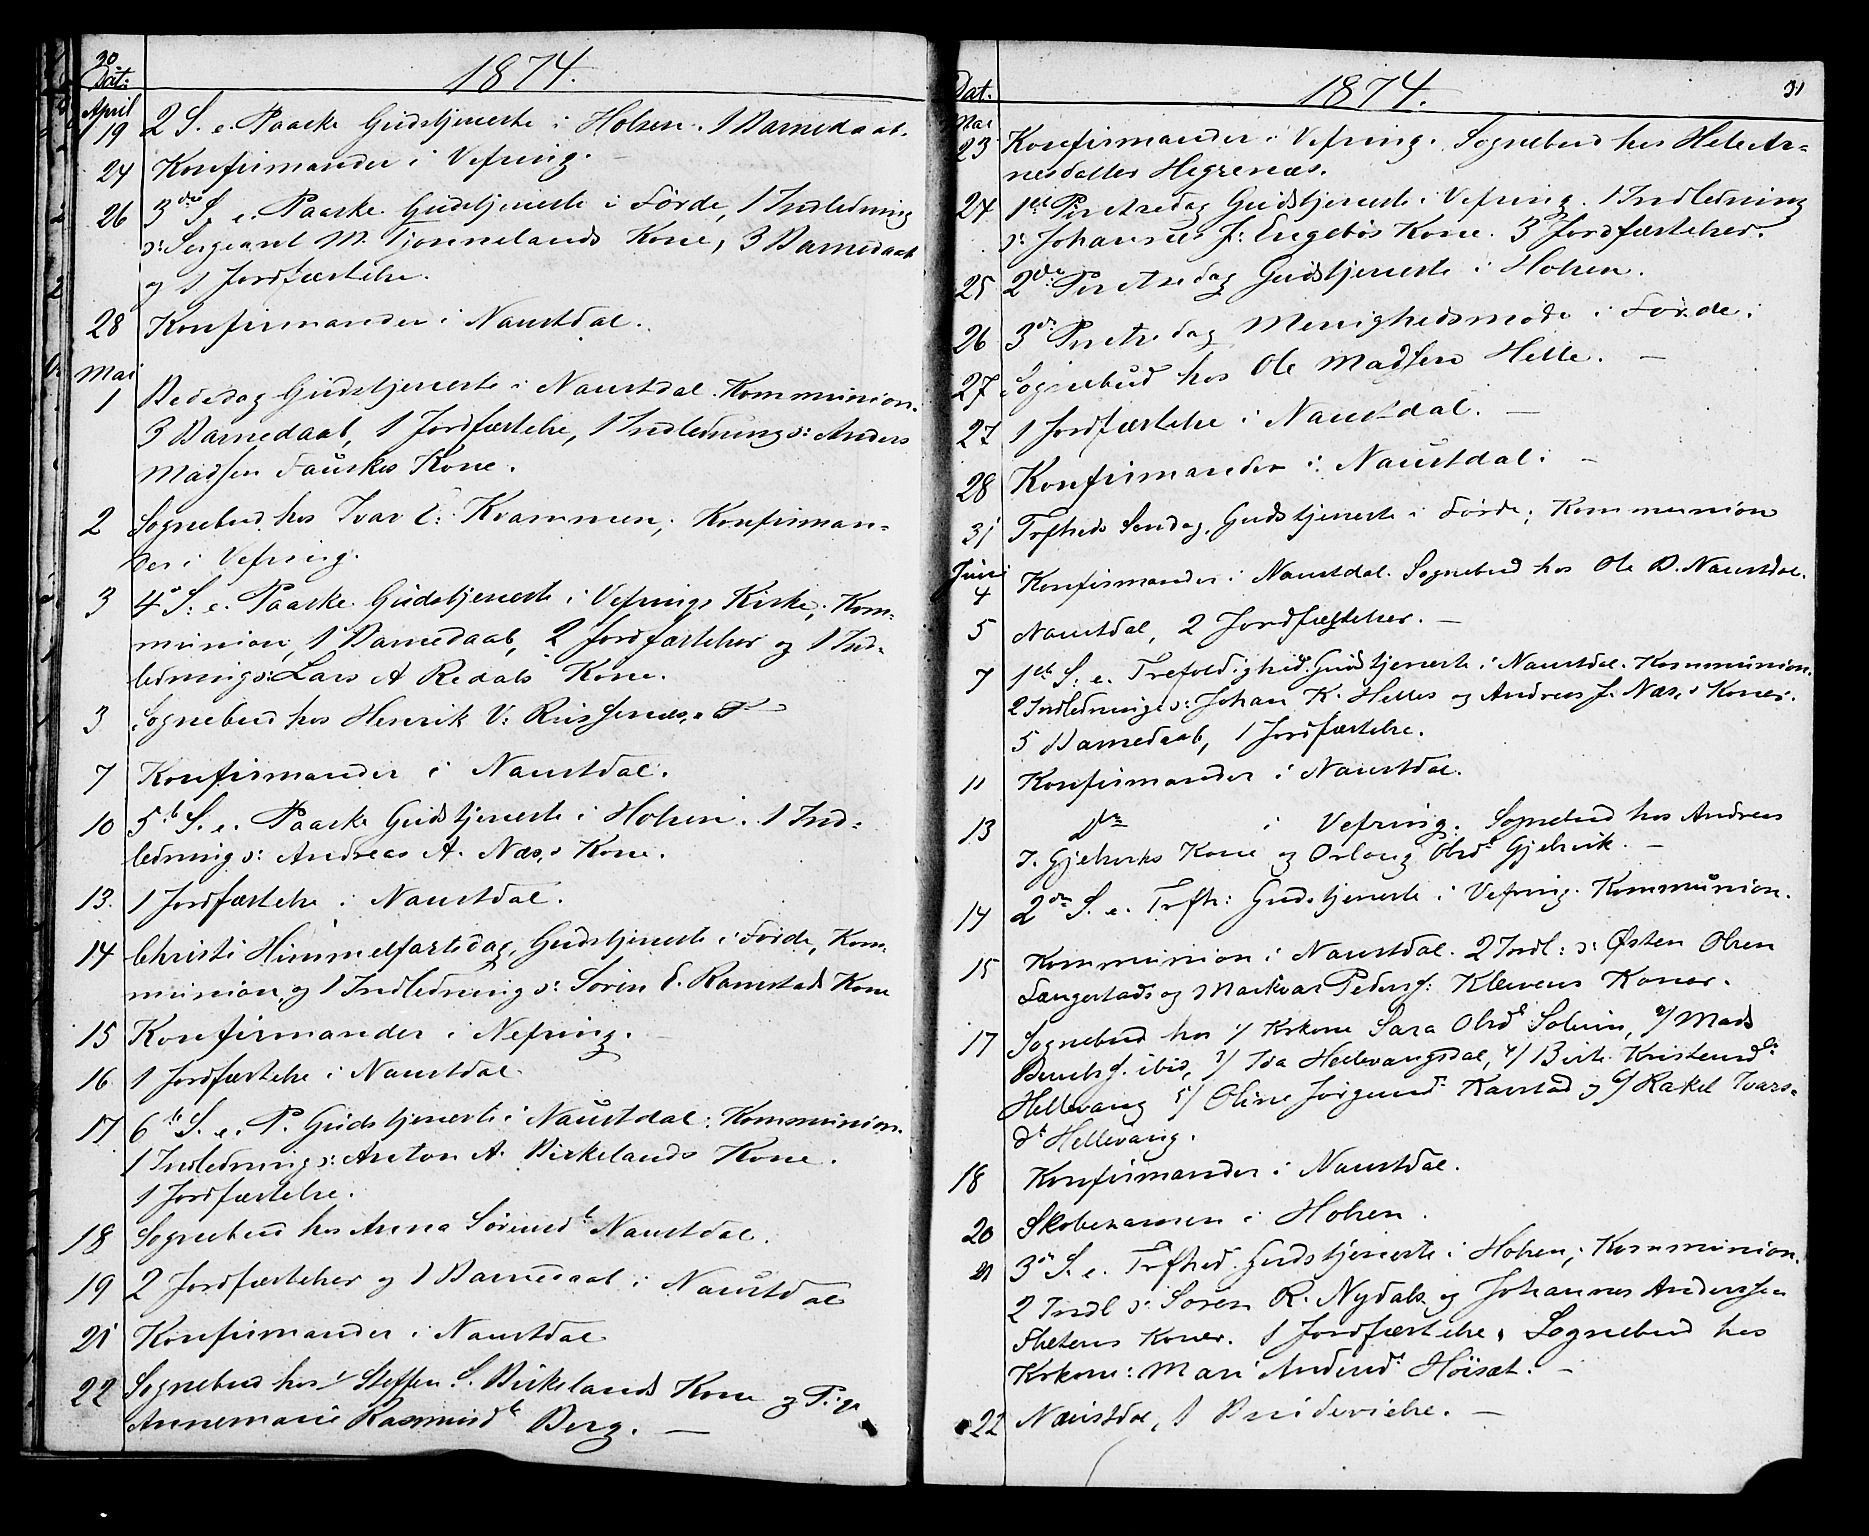 30
1874.
Dat:
April
19 2 S. e. Paaske Gudstjeneste i Holsen. 1 Barnedaab.
24 Konfirmander i Vefring.
26 3die S. e. Paaske. Gudstjeneste i Förde, 1 Indledning
ɔ: Sergeant M. Tjönnelands Kone, 3 Barnedaab
og 1 Jordfæstelse.
28 Konfirmander i Naustdal.
Mai
1 Bededag Gudstjeneste i Naustdal. Kommunion.
3 Barnedaab, 1 Jordfæstelse, 1 Indledning ɔ: Anders
Madsen Fauskes Kone.
2 Sognebud hos Ivar E: Kvammen; Konfirman-
der i Vefring.
3 4de S: e. Paaske. Gudstjeneste i Vefrings Kirke; Kom-
munion, 1 Barnedaab, 2 Jordfæstelser og 1 Ind-
ledning ɔ: Lars A Redals Kone.
3 Sognebud hos Henrik V:
7 Konfirmander i Naustdal.
10 5te S. e. Paaske Gudstjeneste i Holsen. 1 Ind-
ledning ɔ: Andreas A. Næs's Kone.
13. 1 Jordfæstelse i Naustdal.
14 Christi Himmelfartsdag, Gudstjeneste i Förde, Kom-
munion og 1 Indledning ɔ: Sören E. Ramstads Kone
15 Konfirmander i Vefring.
16 1 Jordfæstelse i Naustdal
17 6te S. e. P. Gudstjeneste i Naustdal: Kommunion.
1 Indledning ɔ: Anton A. Birkelands Kone.
1 Jordfæstelse.
18 Sognebud hos Anna Sörensdt Naustdal.
19 2 Jordfæstelser og 1 Barnedaab i Naustdal
21 Konfirmander i Naustdal
22 Sognebud hos 1/ Steffen S. Birkelands Kone og Pige
Annemarie Rasmusdt Berg. —
31
1874.
Dat.
Mai
23 Konfirmander i Vefring. Sognebud hos Helle Ar-
nesdatter Hegrenæs.
24 1ste Pintsedag Gudstjeneste i Vefring. 1 Indledning
ɔ: Johannes J: Engebös Kone. 3 Jordfæstelser.
25 2den Pintsedag Gudstjeneste i Holsen.
26 3die Pintsedag Menighedsmöde i Förde.
27 Sognebud hos Ole Madsen Helle. —
27 1 Jordfæstelse i Naustdal. —
28 Konfirmander i Naustdal. —
31 Trfheds Söndag. Gudstjeneste i Förde; Kommunion
Juni
4 Konfirmander i Naustdal. Sognebud hos Ole D. Naustdal.
5 Naustdal, 2 Jordfæstelser. —
7 1ste S. e. Trefoldighed. Gudstjeneste i Naustdal. Kommunion.
2 Indledninge ɔ: Johan K. Helles og Andreas J. Næs's Koner.
5 Barnedaab, 1 Jordfæstelse.
11 Konfirmander i Naustdal.
13 Do i Vefring. Sognebud hos Andreas
J. Gjelsviks Kone og Orlaug Olsdt Gjelsvik. —
14 2den S. e. Trfh: Gudstjeneste i Vefring. Kommunion.
15 Kommunion i Naustdal. 2 Indl: ɔ: Østen Olsen
Langestads og Markvar Peders: Klævens Koner.
17 Sognebud hos 1/ Krkone Sara Olsdt Solem, 2/ Mads
ibid, 3/ Ida Hellevangsdal, 4/ Birte Kristensdt
Hellevang 5/ Oline Jörgensdt Karstad og 6/ Rakel Ivars-
dt Hellevang.
18 Konfirmander i Naustdal.
20 Skolexamen i Holsen.
21 3die S. e. Trfhed. Gudstjeneste i Holsen; Kommunion.
2 Indl ɔ: Sören R. Nydals og Johannes Anderssen
Slettens Koner. 1 Jordfæstelse. Sognebud hos
Krkone: Mari Andersdt Höisæt. —
22 Naustdal, 1 Brudevielse. —